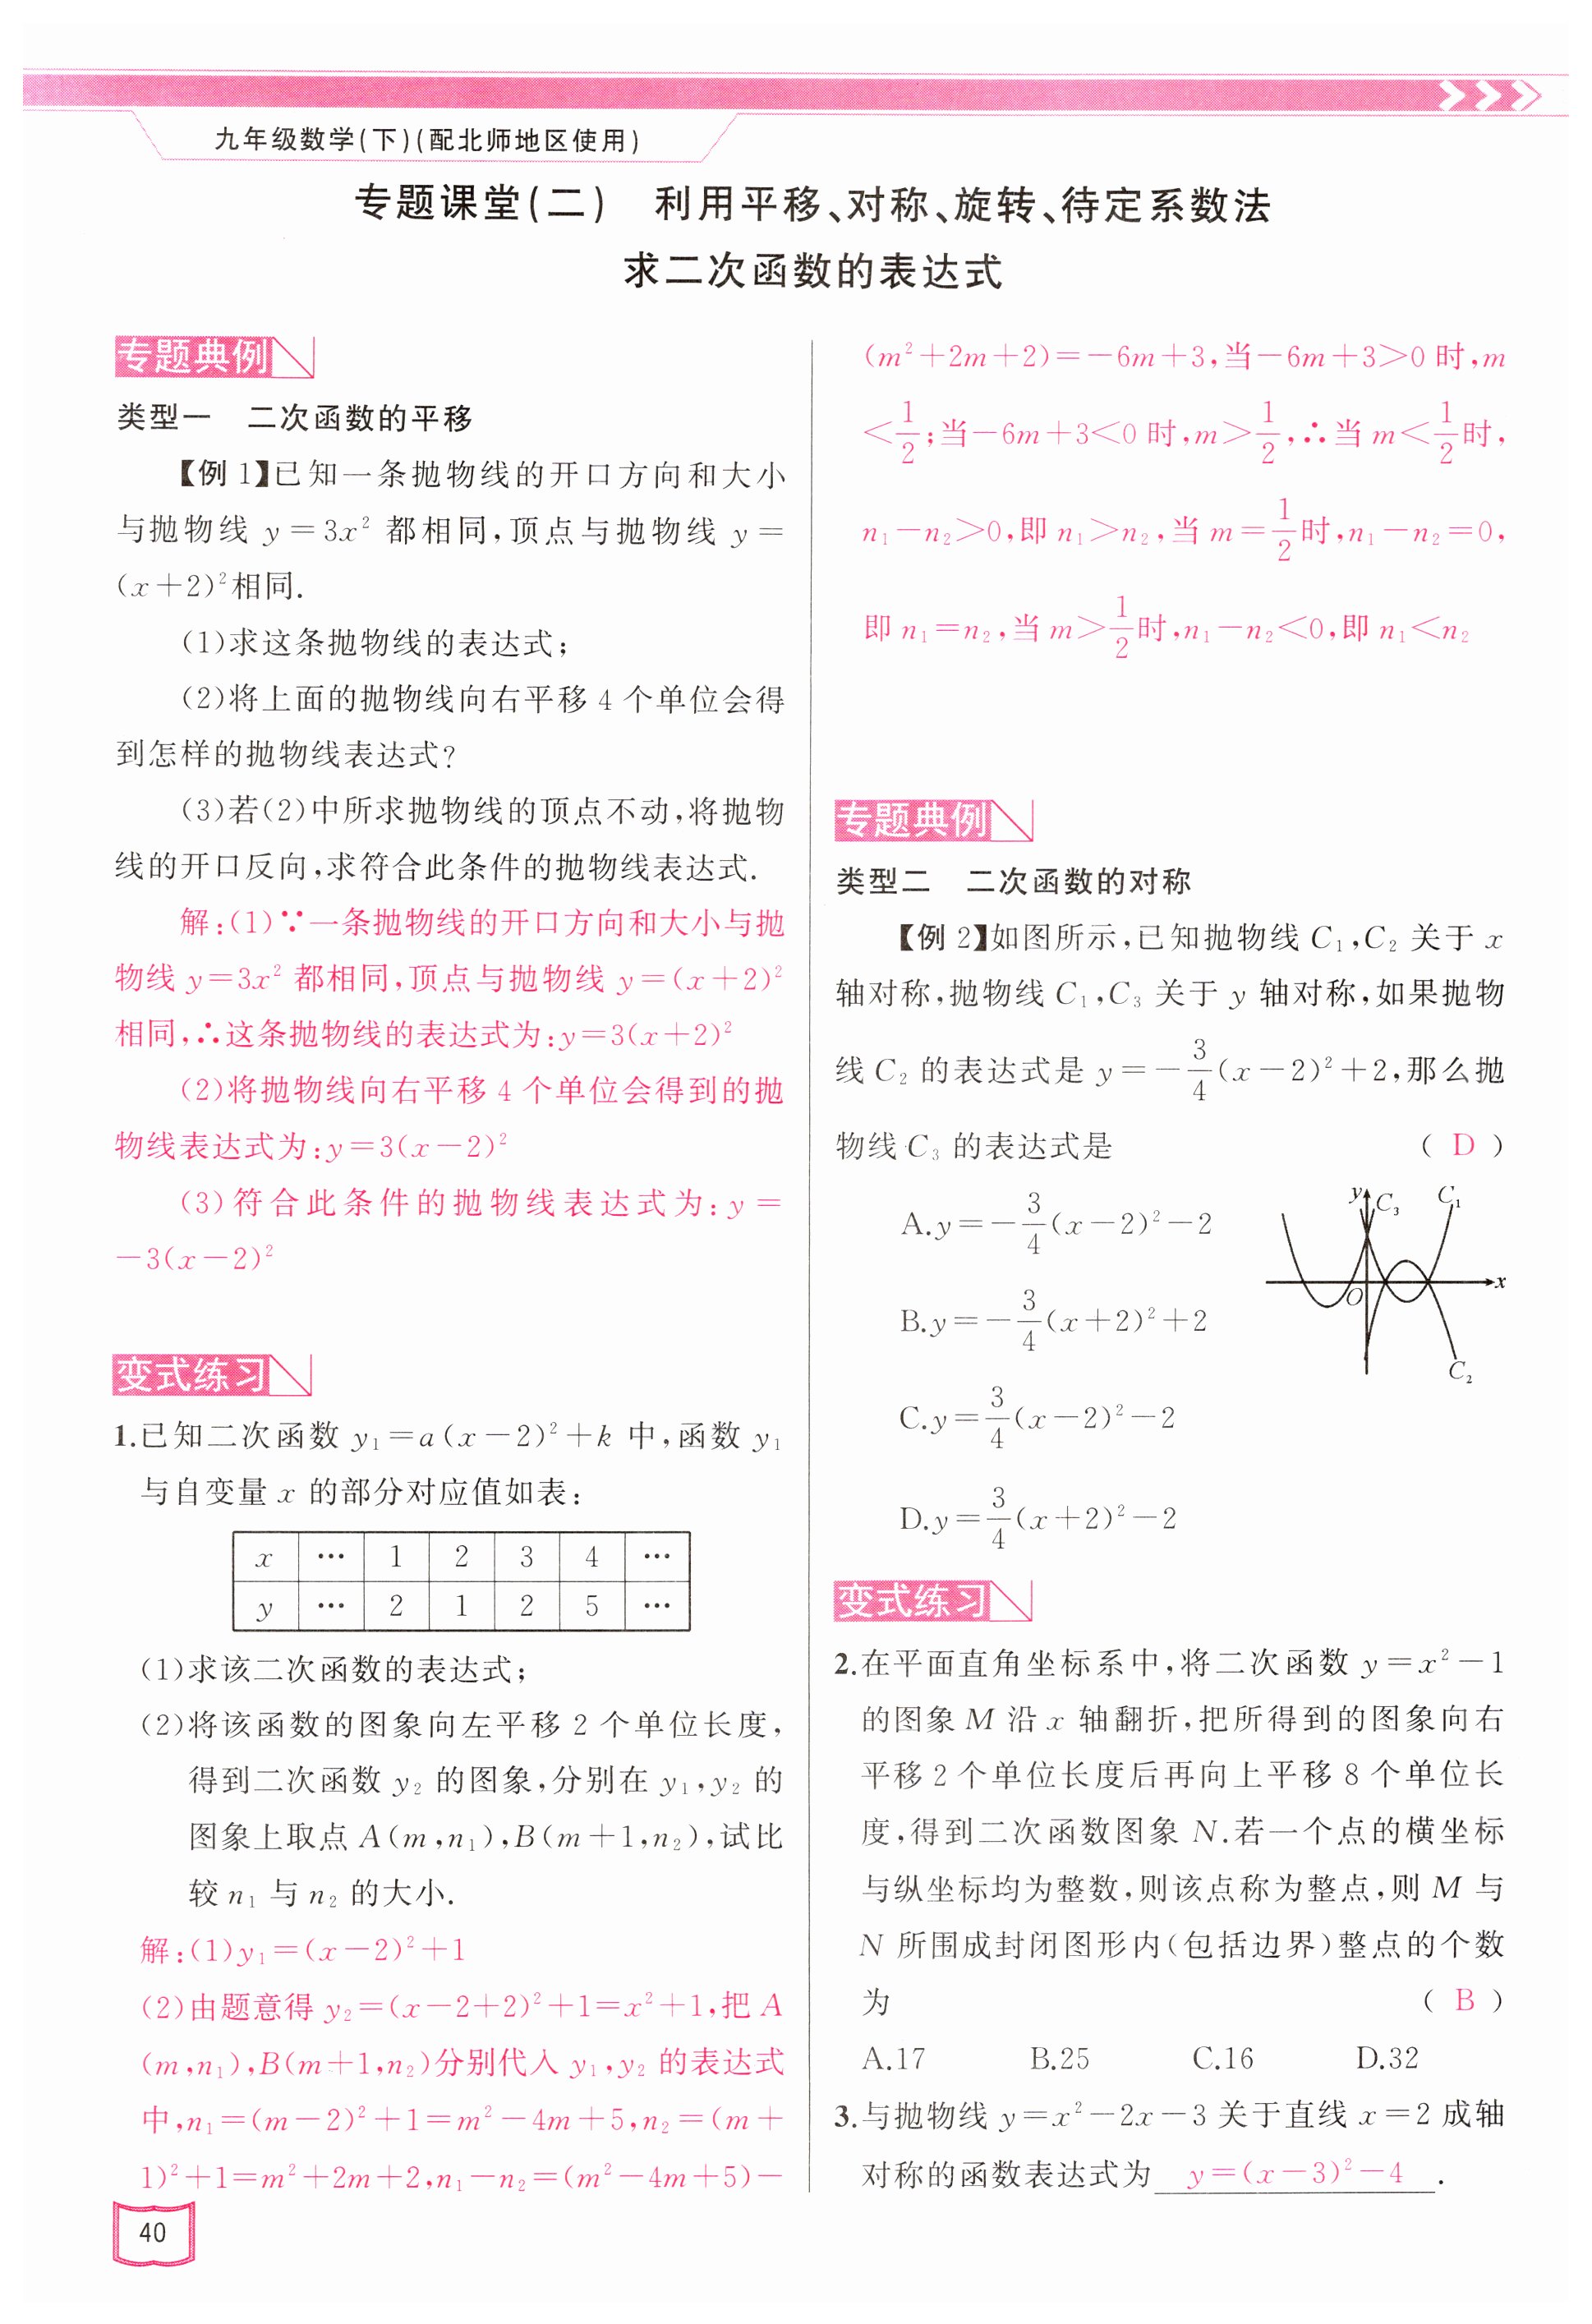 九年级数学(下)(配北师地区使用)
专题课堂(二) 利用平移、对称、旋转、待定系数法
求二次函数的表达式
专题典例
类型一 二次函数的平移
【例 1】已知一条抛物线的开口方向和大小
与抛物线 y=3x² 都相同,顶点与抛物线 y=
(x+2)²相同.
(1)求这条抛物线的表达式;
(2)将上面的抛物线向右平移 4 个单位会得
到怎样的抛物线表达式?
(3)若(2)中所求抛物线的顶点不动,将抛物
线的开口反向,求符合此条件的抛物线表达式.
解:(1)∵一条抛物线的开口方向和大小与抛
物线 y=3x² 都相同,顶点与抛物线 y=(x+2)²
相同,∴这条抛物线的表达式为:y=3(x+2)²
(2)将抛物线向右平移 4 个单位会得到的抛
物线表达式为:y=3(x-2)²
(3)符合此条件的抛物线表达式为:y=
-3(x-2)²
变式练习
1.已知二次函数 y₁=a(x-2)²+k 中,函数 y₁
与自变量 x 的部分对应值如表:
x … 1 2 3 4 …
y … 2 1 2 5 …
(1)求该二次函数的表达式;
(2)将该函数的图象向左平移 2 个单位长度,
得到二次函数 y₂ 的图象,分别在 y₁,y₂ 的
图象上取点 A(m,n₁),B(m+1,n₂),试比
较 n₁ 与 n₂ 的大小.
解:(1)y₁=(x-2)²+1
(2)由题意得 y₂=(x-2+2)²+1=x²+1,把 A
(m,n₁),B(m+1,n₂)分别代入 y₁,y₂ 的表达式
中,n₁=(m-2)²+1=m²-4m+5,n₂=(m+
1)²+1=m²+2m+2,n₁-n₂=(m²-4m+5)-
40
(m²+2m+2)=-6m+3,当-6m+3>0 时,m
<1/2;当-6m+3<0 时,m>1/2,∴当 m<1/2时,
n₁-n₂>0,即 n₁>n₂,当 m=1/2时,n₁-n₂=0,
即 n₁=n₂,当 m>1/2时,n₁-n₂<0,即 n₁<n₂
专题典例
类型二 二次函数的对称
【例 2】如图所示,已知抛物线 C₁,C₂ 关于 x
轴对称,抛物线 C₁,C₃ 关于 y 轴对称,如果抛物
线 C₂ 的表达式是 y=-3/4(x-2)²+2,那么抛
物线 C₃ 的表达式是 ( D )
A.y=-3/4(x-2)²-2
B.y=-3/4(x+2)²+2
C.y=3/4(x-2)²-2
D.y=3/4(x+2)²-2
y C₃ C₁
O x
C₂
变式练习
2.在平面直角坐标系中,将二次函数 y=x²-1
的图象 M 沿 x 轴翻折,把所得到的图象向右
平移 2 个单位长度后再向上平移 8 个单位长
度,得到二次函数图象 N.若一个点的横坐标
与纵坐标均为整数,则该点称为整点,则 M 与
N 所围成封闭图形内(包括边界)整点的个数
为 ( B )
A.17 B.25 C.16 D.32
3.与抛物线 y=x²-2x-3 关于直线 x=2 成轴
对称的函数表达式为 y=(x-3)²-4 .